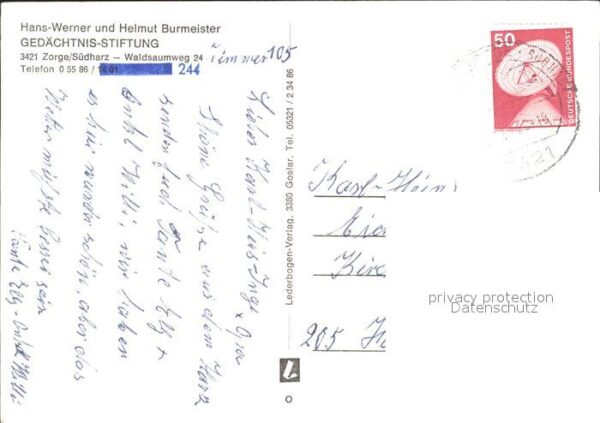 Hans-Werner und Helmut Burmeister
GEDÄCHTNIS-STIFTUNG
3421 Zorge/Südharz — Waldsaumweg 24
Telefon 0 55 86 / 244
Zimmer 105
Lieber Karl-Heinz, Inge
x Opa
Schöne Grüße aus dem Harz
senden Euch Tante Elly +
Onkel Willi, wir haben
es hier wunderschön, aber das
Wetter müßte besser sein
Tante Elly - Onkel Willi
Lederbogen-Verlag, 3380 Goslar, Tel. 05321 / 2 34 86
50
DEUTSCHE BUNDESPOST
Karl-Hein
205
privacy protection
Datenschutz